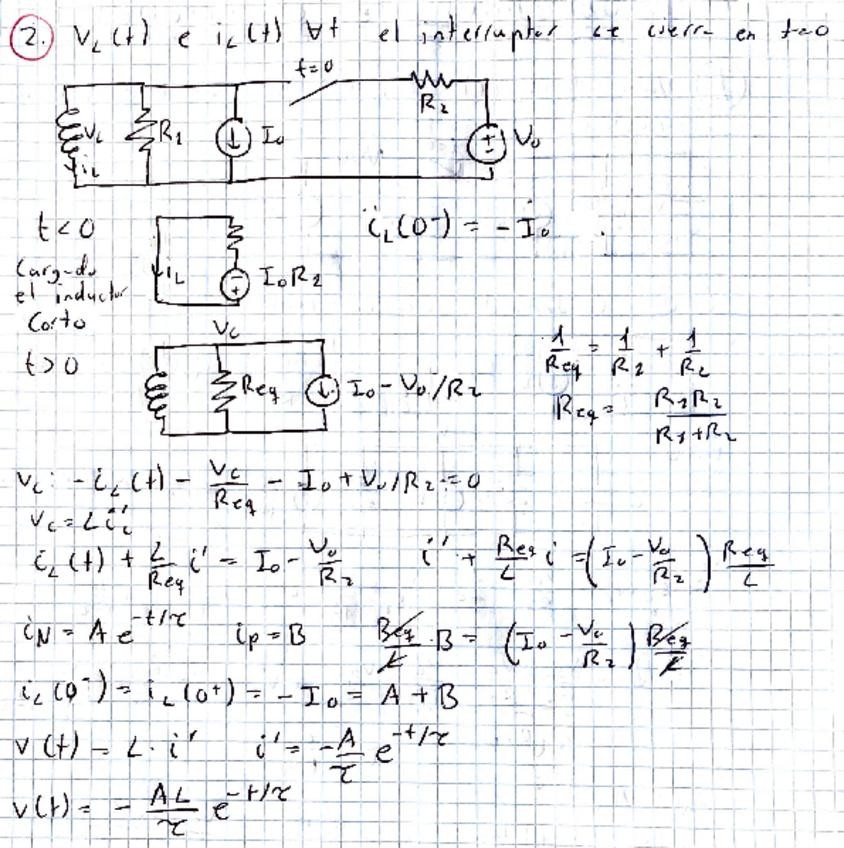 2. V_L(t) e i_L(t) ∀t el interruptor se cierra en t=0
t=0
V_L R_1 I_0 R_2 V_0
i_L
t<0 i_L(0⁻) = -I_0
Cargado
el inductor
Corto
i_L I_0R_2
t>0
V_L
Req I_0 - V_0/R_2
1/Req = 1/R_1 + 1/R_2
Req = R_1R_2/(R_1+R_2)
V_L: -i_L(t) - V_L/Req - I_0 + V_0/R_2 = 0
V_L = L i_L'
i_L(t) + L/Req i' = I_0 - V_0/R_2 i' + Req/L i = (I_0 - V_0/R_2) Req/L
i_N = A e^{-t/τ} i_p = B Req/L · B = (I_0 - V_0/R_2) Req/L
i_L(0⁻) = i_L(0⁺) = -I_0 = A + B
v(t) = L · i' i' = -A/τ e^{-t/τ}
v(t) = - AL/τ e^{-t/τ}